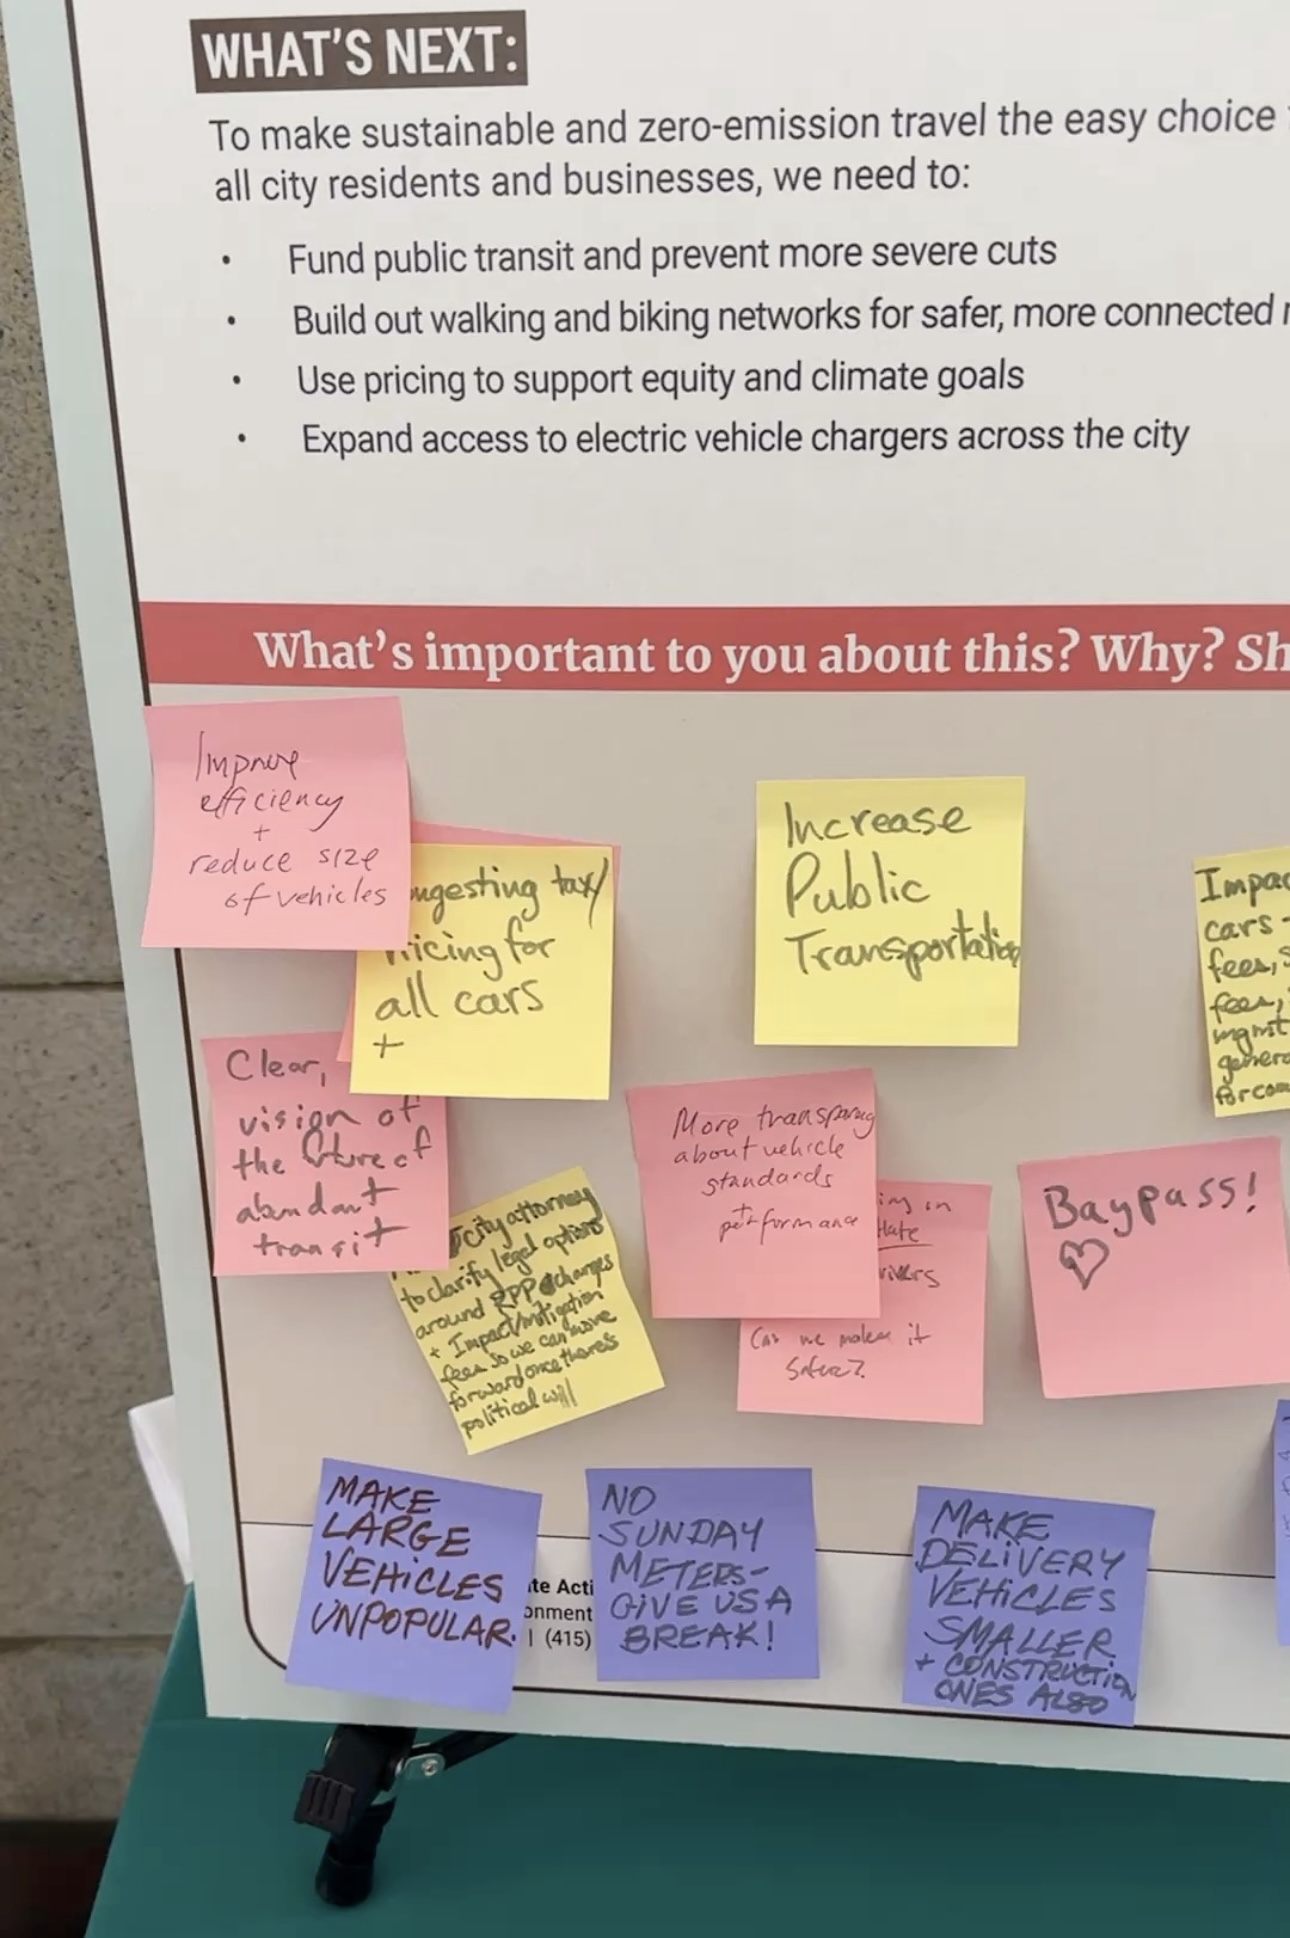 WHAT'S NEXT:
To make sustainable and zero-emission travel the easy choice
all city residents and businesses, we need to:
• Fund public transit and prevent more severe cuts
• Build out walking and biking networks for safer, more connected
• Use pricing to support equity and climate goals
• Expand access to electric vehicle chargers across the city
What's important to you about this? Why? Sh
Improve
efficiency
+
reduce size
of vehicles
ngesting tax/
ricing for
all cars
+
Increase
Public
Transportation
Impac
cars -
fees, s
fees,
mgmt
genera
for com
Clear,
vision of
the future of
abundant
transit
city attorney
to clarify legal options
around RPP charges
+ Impact/mitigation
fees so we can move
forward once there's
political will
More
about vehicle
standards
+
performance
ing in
late
rivers
Can we make it
safer?
Baypass!
♡
MAKE
LARGE
VEHICLES
UNPOPULAR.
NO
SUNDAY
METERS-
GIVE US A
BREAK!
MAKE
DELIVERY
VEHICLES
SMALLER
+ CONSTRUCTION
ONES ALSO
te Acti
onment
| (415)